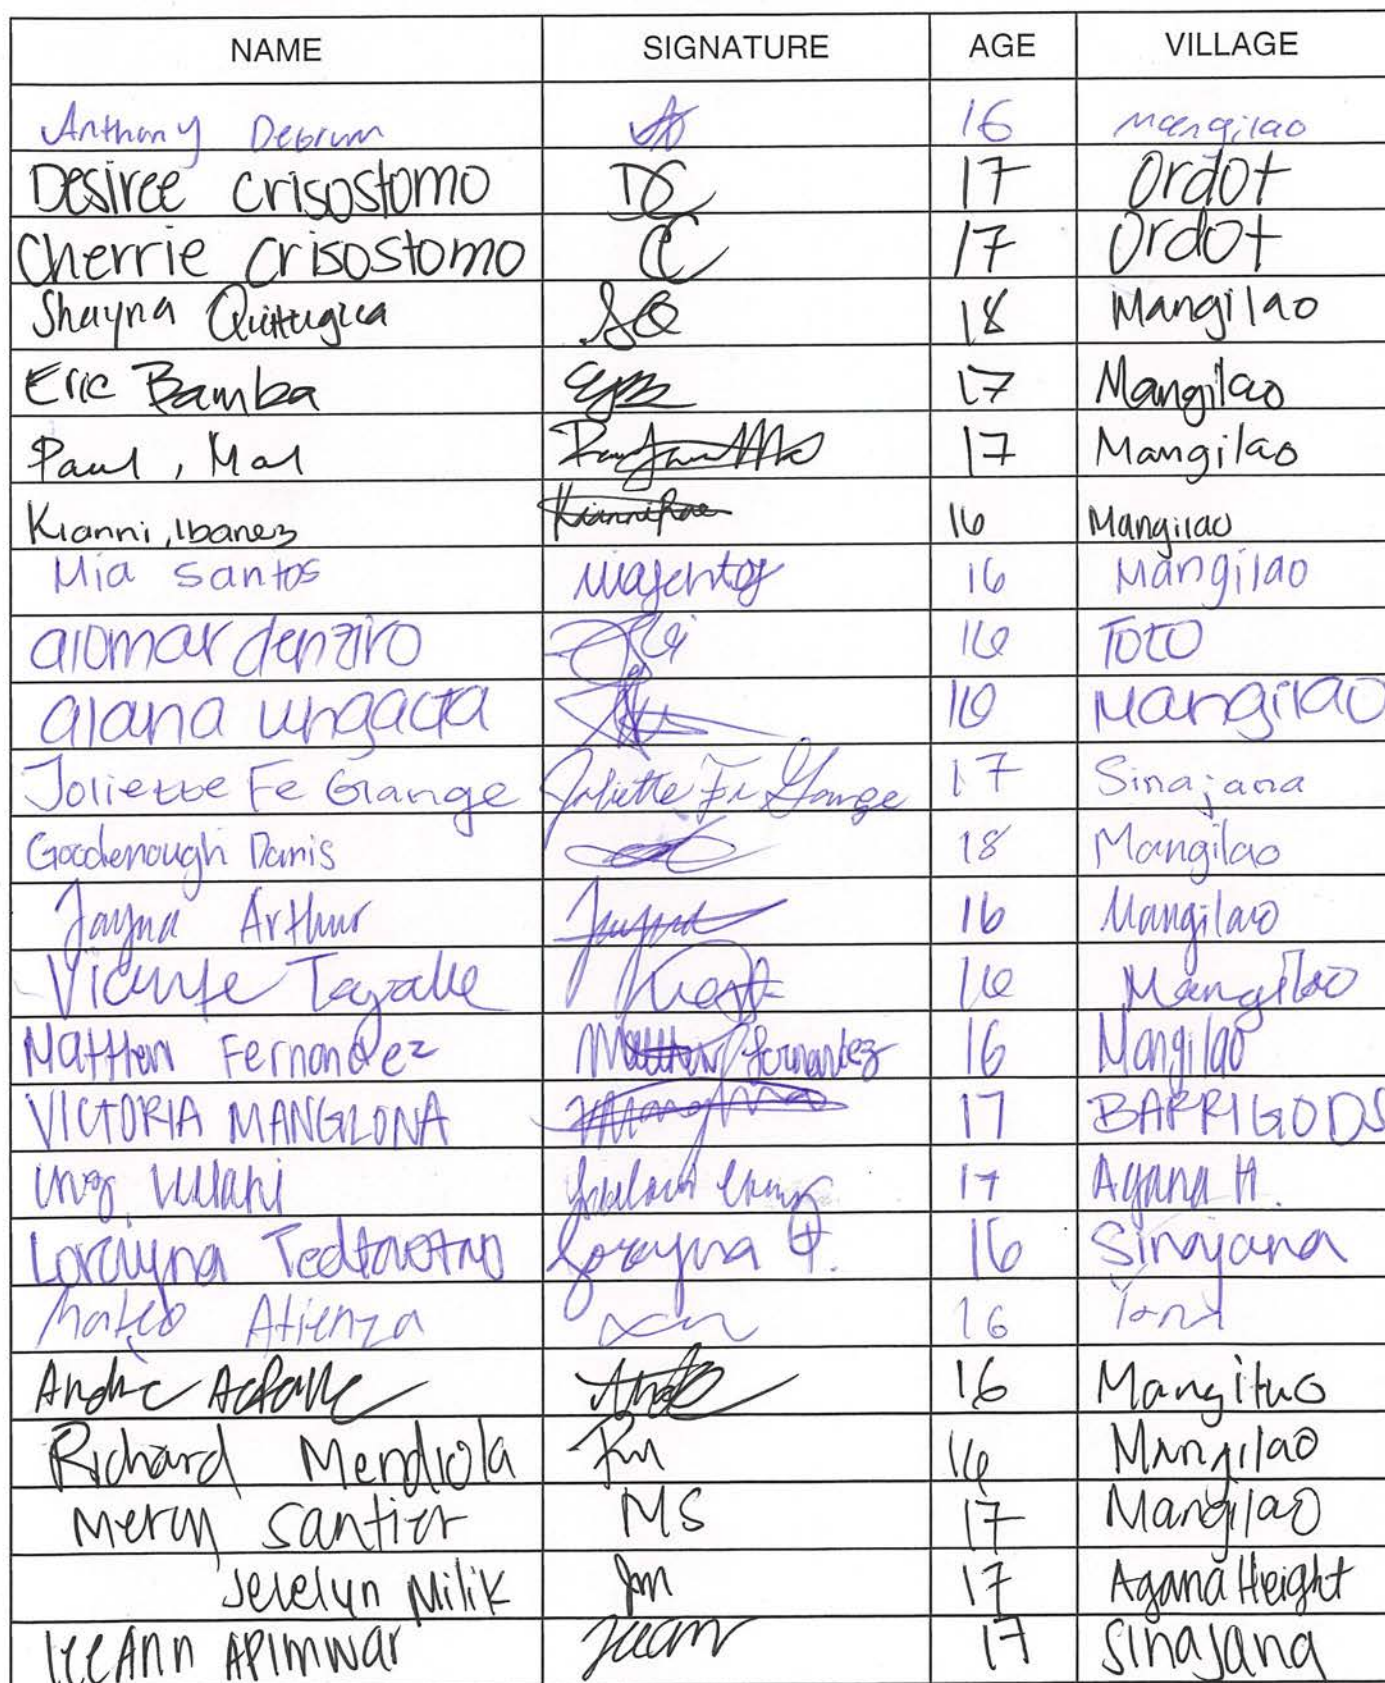 NAME SIGNATURE AGE VILLAGE
Anthony Debrum 16 Mangilao
Desiree Crisostomo DC 17 Ordot
Cherrie Crisostomo CC 17 Ordot
Shayna Quitugua SQ 18 Mangilao
Eric Bamba 17 Mangilao
Paul, Mal 17 Mangilao
Kianni, Ibanez 16 Mangilao
Mia Santos miasantos 16 Mangilao
16 TOTO
alana ungacta 16 Mangilao
Joliette Fe Grange Joliette Fe Grange 17 Sinajana
Goodenough Danis 18 Mangilao
Jayna Arthur Jayna 16 Mangilao
Vicente 16 Mangilao
Matthew Fernandez Matthew Fernandez 16 Mangilao
VICTORIA MANGLONA 17 BARRIGODS
17 Agana H.
Lorayna Tedtaotao Lorayna T. 16 Sinajana
Mateo Atienza 16
Andre 16
Richard Mendiola RM 16 Mangilao
MS 17 Mangilao
Jerelyn Milik Jm 17 Agana Height
APIMWAR 17 Sinajana